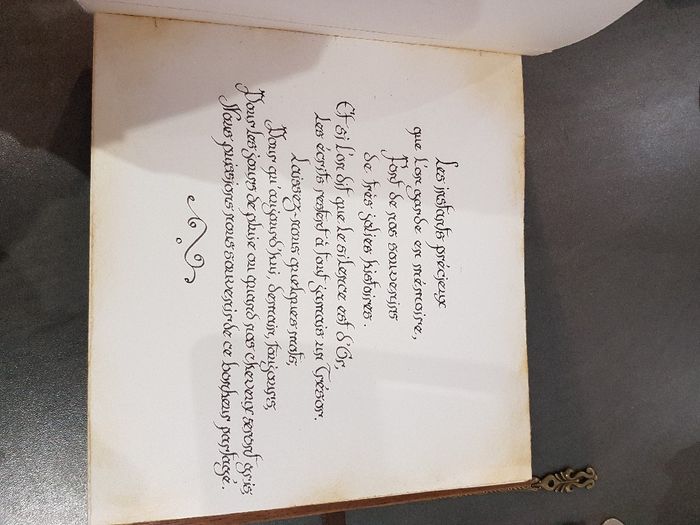 Les instants précieux
que l'on garde en mémoire,
Font de nos souvenirs
de très jolies histoires.
Et si l'on dit que le silence est d'Or,
Les écrits restent à tout jamais un Trésor.
Laissez-nous quelques mots,
Pour qu'aujourd'hui, demain, toujours,
Pour les jours de pluie ou quand nos cheveux seront gris
Nous puissions nous souvenir de ce bonheur partagé.